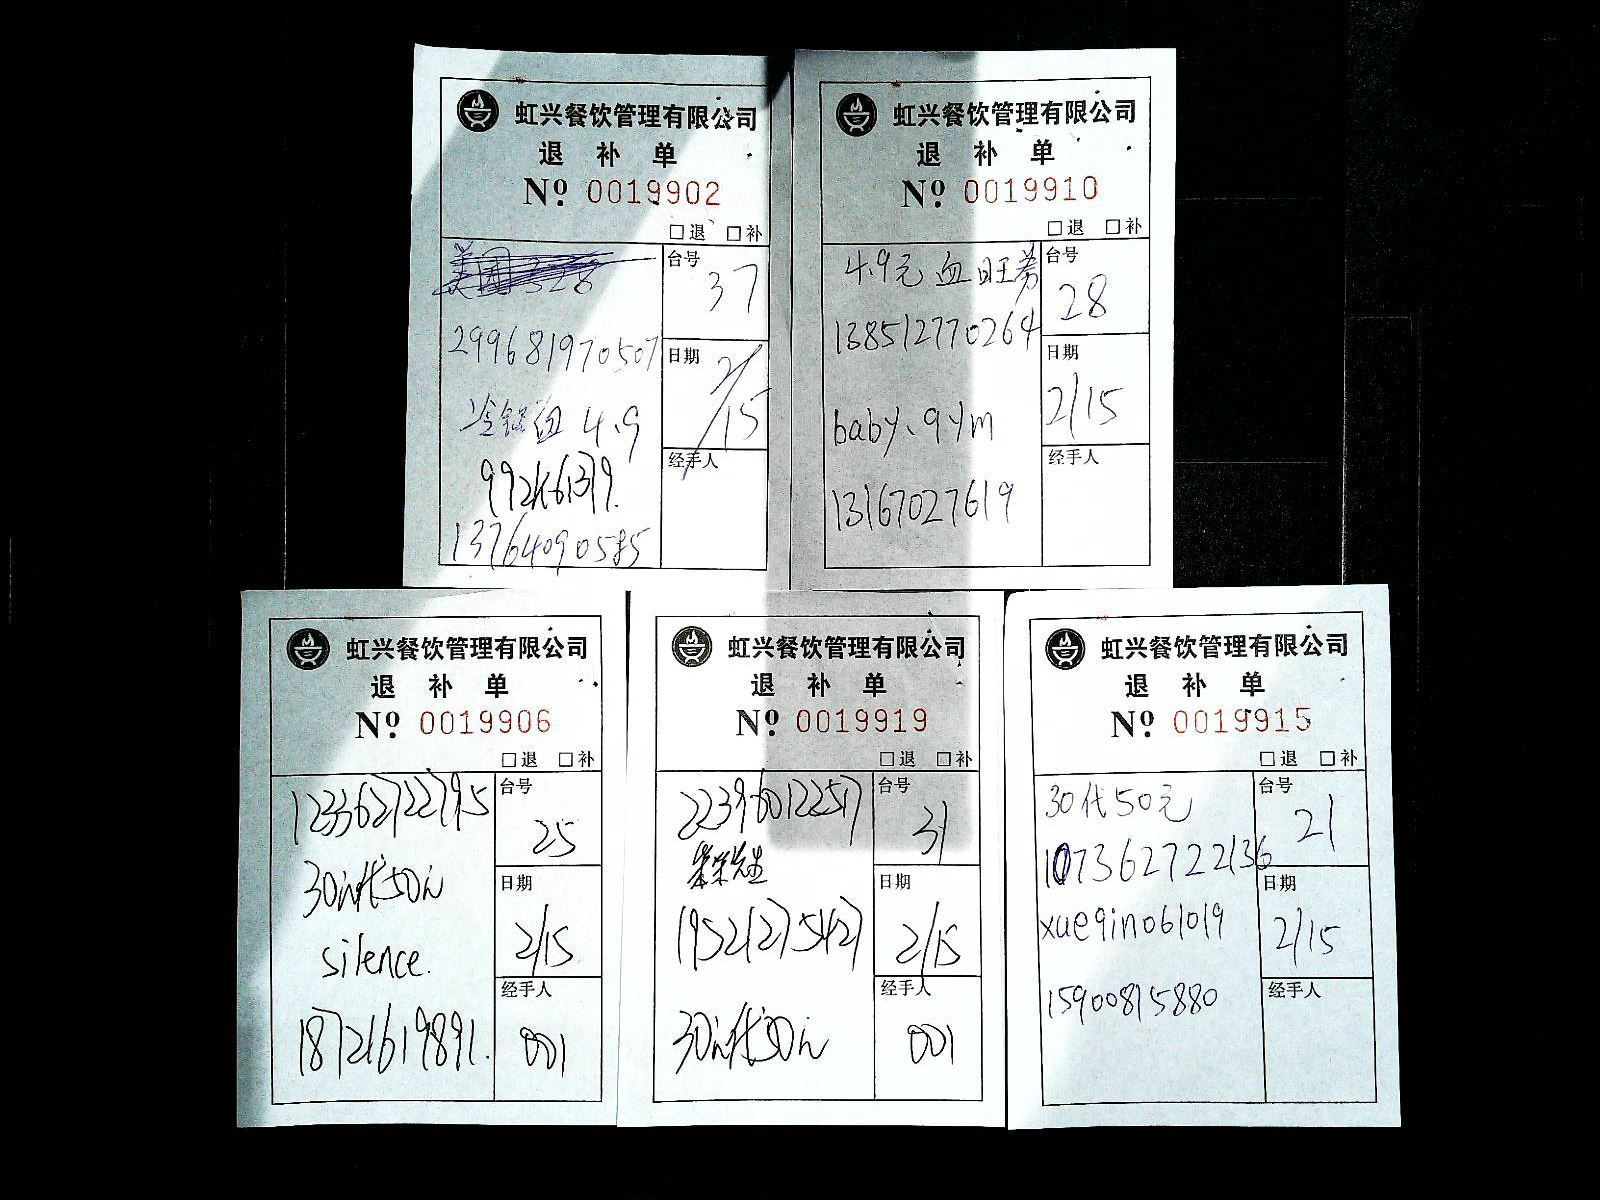 虹兴餐饮管理有限公司
退 补 单
Nº. 0019902
□退 □补
台号
37
299681970507
日期
2/15
4.9
经手人
13764090585
虹兴餐饮管理有限公司
退 补 单
Nº. 0019910
□退 □补
4.9元 血旺券
台号
28
138512770264
日期
2/15
baby、qym
经手人
13167027619
虹兴餐饮管理有限公司
退 补 单
Nº. 0019906
□退 □补
123362722795
台号
25
30元代50元
日期
2/15
silence.
经手人
18721619891.
001
虹兴餐饮管理有限公司
退 补 单
Nº. 0019919
□退 □补
台号
31
先生
日期
2/15
经手人
30元代50元
001
虹兴餐饮管理有限公司
退 补 单
Nº. 0019915
□退 □补
30代50元
台号
21
107362722136
日期
xueqin061019
2/15
15900815880
经手人